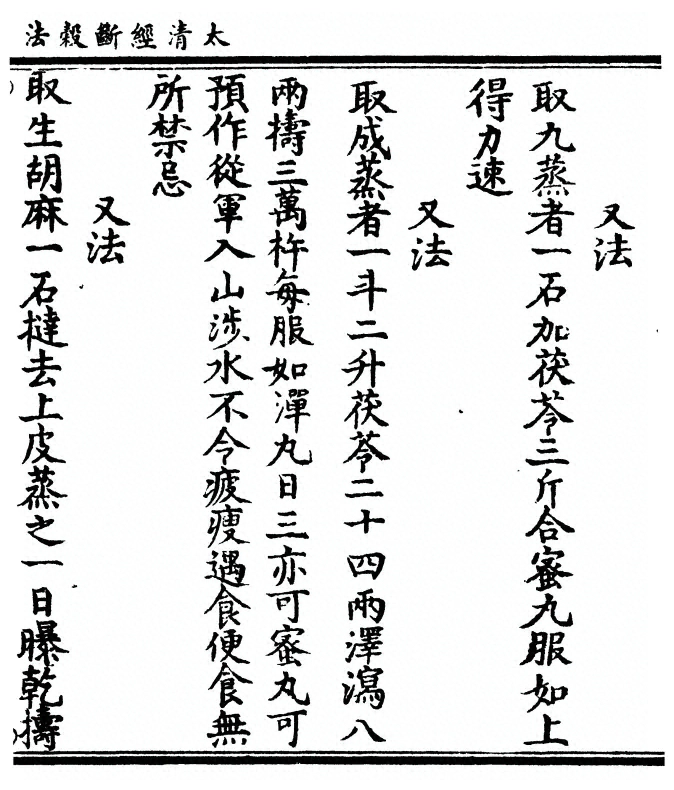 太清經斷穀法
又法
取九蒸者一石加茯苓三斤合蜜九服如上
得力速
又法
取成蒸者一斗二升茯苓二十四兩澤瀉八
兩擣三萬杵每服如渾丸日三亦可蜜丸可
預作從軍入山涉水不令疲瘦遇食便食無
所禁忌
又法
取生胡麻一石撻去上皮蒸之一日曝乾擣